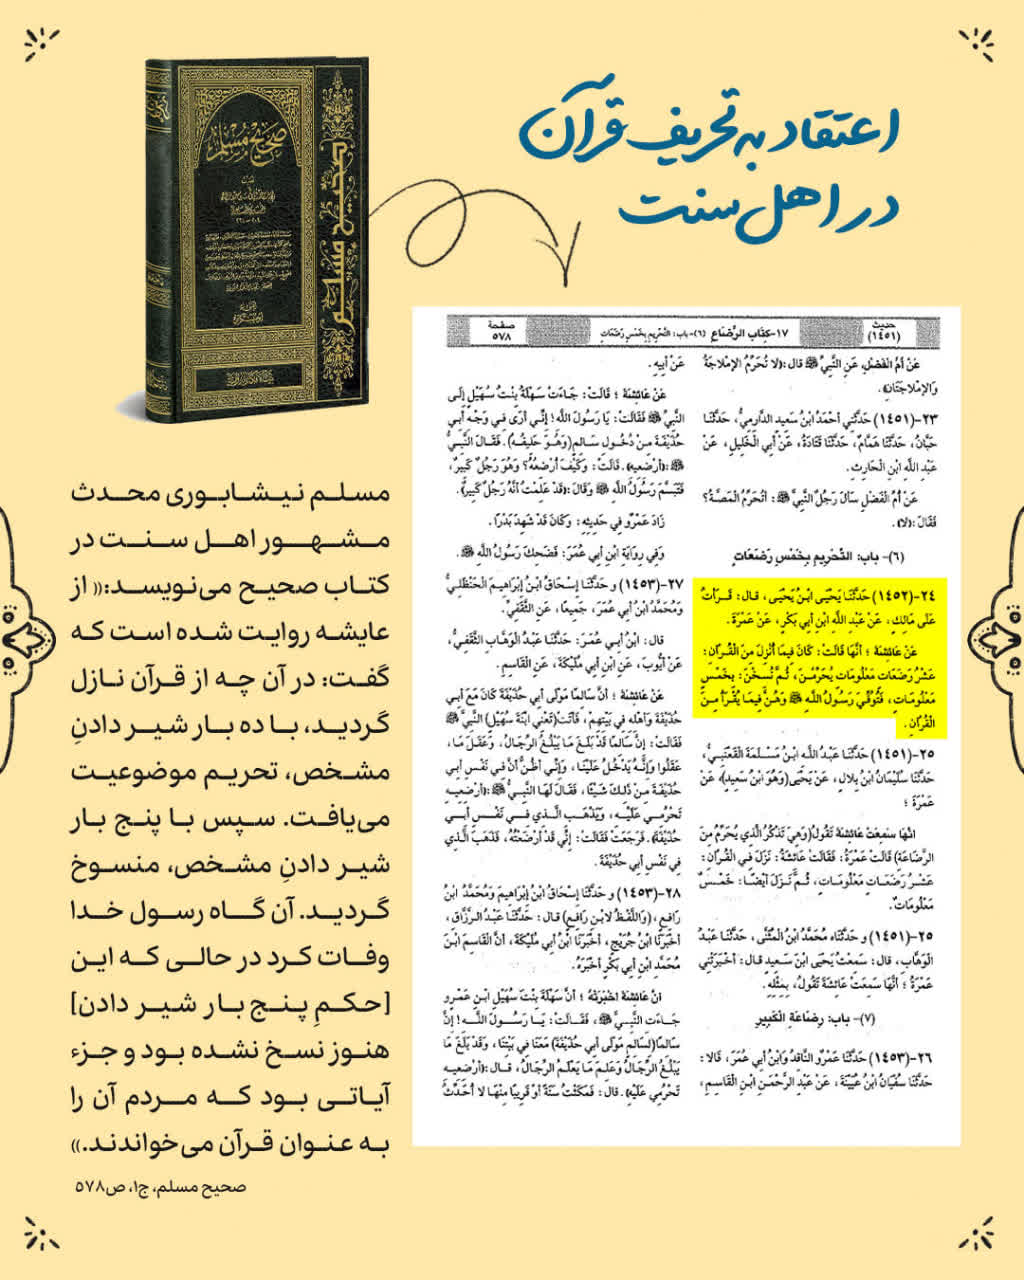 اعتقاد به تحریف قرآن
در اهل سنت
صحيح مسلم
صحيح مسلم
مسلم نیشابوری محدث
مشهور اهل سنت در
کتاب صحیح می‌نویسد:« از
عایشه روایت شده است که
گفت: در آن چه از قرآن نازل
گردید، با ده بار شیر دادنِ
مشخص، تحریم موضوعیت
می‌یافت. سپس با پنج بار
شیر دادنِ مشخص، منسوخ
گردید. آن گاه رسول خدا
وفات کرد در حالی که این
[حکمِ پنج بار شیر دادن]
هنوز نسخ نشده بود و جزء
آیاتی بود که مردم آن را
به عنوان قرآن می‌خواندند.»
صحیح مسلم، ج۱، ص۵۷۸
حديث
(١٤٥١)
١٧-كِتَاب الرَّضَاعِ (٦)-باب: التَّحْرِيم بِخَمْسِ رَضَعَاتٍ
صفحة
٥٧٨
عَنْ أُمِّ الْفَضْلِ، عَنِ النَّبِيِّ ﷺ قال: (لا تُحَرِّمُ الإِمْلاجَةُ
وَالإِمْلاجَتَانِ).
٢٣-(١٤٥١) حَدَّثَنِي أحْمَدُ ابْنُ سَعِيدٍ الدَّارِمِيُّ، حَدَّثَنَا
حَبَّانُ، حَدَّثَنَا هَمَّامٌ، حَدَّثَنَا قَتَادَةُ، عَنْ أبِي الْخَلِيلِ، عَنْ
عَبْدِ اللَّهِ ابْنِ الْحَارِثِ.
عَنْ أُمِّ الْفَضْلِ سَألَ رَجُلٌ النَّبِيَّ ﷺ: أتُحَرِّمُ الْمَصَّةُ؟
فَقَالَ: (لا).
(٦)- باب: التَّحْرِيمِ بِخَمْسِ رَضَعَاتٍ
٢٤-(١٤٥٢) حَدَّثَنَا يَحْيَى ابْنُ يَحْيَى، قال: قَرَأتُ
عَلَى مَالِكٍ، عَنْ عَبْدِ اللَّهِ ابْنِ أبِي بَكْرٍ، عَنْ عَمْرَةَ.
عَنْ عَائِشَةَ ؛ أنَّهَا قَالَتْ: كَانَ فِيمَا أُنْزِلَ مِنَ الْقُرْآنِ:
عَشْرُ رَضَعَاتٍ مَعْلُومَاتٍ يُحَرِّمْنَ، ثُمَّ نُسِخْنَ: بِخَمْسٍ
مَعْلُومَاتٍ، فَتُوُفِّيَ رَسُولُ اللَّهِ ﷺ وَهُنَّ فِيمَا يُقْرَأُ مِنَ
الْقُرْآنِ.
٢٥-(١٤٥١) حَدَّثَنَا عَبْدُ اللَّهِ ابْنُ مَسْلَمَةَ الْقَعْنَبِيُّ،
حَدَّثَنَا سُلَيْمَانُ ابْنُ بِلالٍ، عَنْ يَحْيَى (وَهُوَ ابْنُ سَعِيدٍ) عَنْ
عَمْرَةَ ؛
أنَّهَا سَمِعَتْ عَائِشَةَ تَقُولُ (وَهِيَ تَذْكُرُ الَّذِي يُحَرِّمُ مِنَ
الرَّضَاعَةِ) قَالَتْ عَمْرَةُ: فَقَالَتْ عَائِشَةُ: نَزَلَ فِي الْقُرْآنِ:
عَشْرُ رَضَعَاتٍ مَعْلُومَاتٍ، ثُمَّ نَزَلَ أيْضًا: خَمْسٌ
مَعْلُومَاتٌ.
٢٥-(١٤٥١) و حَدَّثَنَاه مُحَمَّدُ ابْنُ الْمُثَنَّى، حَدَّثَنَا عَبْدُ
الْوَهَّابِ، قال: سَمِعْتُ يَحْيَى ابْنَ سَعِيدٍ قال: أخْبَرَتْنِي
عَمْرَةُ ؛ أنَّهَا سَمِعَتْ عَائِشَةَ تَقُولُ، بِمِثْلِهِ.
(٧)- باب: رِضَاعَةِ الْكَبِيرِ
٢٦-(١٤٥٣) حَدَّثَنَا عَمْرٌو النَّاقِدُ وَابْنُ أبِي عُمَرَ، قَالا:
حَدَّثَنَا سُفْيَانُ ابْنُ عُيَيْنَةَ، عَنْ عَبْدِ الرَّحْمَنِ ابْنِ الْقَاسِمِ،
عَنْ أبِيهِ.
عَنْ عَائِشَةَ ؛ قَالَتْ: جَاءَتْ سَهْلَةُ بِنْتُ سُهَيْلٍ إلَى
النَّبِيِّ ﷺ فَقَالَتْ: يَا رَسُولَ اللَّهِ! إنِّي أرَى فِي وَجْهِ أبِي
حُذَيْفَةَ مِنْ دُخُولِ سَالِمٍ (وَهُوَ حَلِيفُهُ). فَقَالَ النَّبِيُّ
ﷺ: (أرْضِعِيهِ). قَالَتْ: وَكَيْفَ أُرْضِعُهُ؟ وَهُوَ رَجُلٌ كَبِيرٌ،
فَتَبَسَّمَ رَسُولُ اللَّهِ ﷺ وَقَالَ: (قَدْ عَلِمْتُ أنَّهُ رَجُلٌ كَبِيرٌ).
زَادَ عَمْرٌو فِي حَدِيثِهِ: وَكَانَ قَدْ شَهِدَ بَدْرًا.
وَفِي رِوَايَةِ ابْنِ أبِي عُمَرَ: فَضَحِكَ رَسُولُ اللَّهِ ﷺ.
٢٧-(١٤٥٣) و حَدَّثَنَا إسْحَاقُ ابْنُ إبْرَاهِيمَ الْحَنْظَلِيُّ
وَمُحَمَّدُ ابْنُ أبِي عُمَرَ، جَمِيعًا، عَنِ الثَّقَفِيِّ.
قال: ابْنُ أبِي عُمَرَ: حَدَّثَنَا عَبْدُ الْوَهَّابِ الثَّقَفِيُّ،
عَنْ أيُّوبَ، عَنِ ابْنِ أبِي مُلَيْكَةَ، عَنِ الْقَاسِمِ.
عَنْ عَائِشَةَ ؛ أنَّ سَالِمًا مَوْلَى أبِي حُذَيْفَةَ كَانَ مَعَ أبِي
حُذَيْفَةَ وَأهْلِهِ فِي بَيْتِهِمْ، فَأتَتْ (تَعْنِي ابْنَةَ سُهَيْلٍ) النَّبِيَّ ﷺ
فَقَالَتْ: إنَّ سَالِمًا قَدْ بَلَغَ مَا يَبْلُغُ الرِّجَالُ، وَعَقَلَ مَا،
عَقَلُوا وَإنَّهُ يَدْخُلُ عَلَيْنَا، وَإنِّي أظُنُّ أنَّ فِي نَفْسِ أبِي
حُذَيْفَةَ مِنْ ذَلِكَ شَيْئًا، فَقَالَ لَهَا النَّبِيُّ ﷺ: (أرْضِعِيهِ
تَحْرُمِي عَلَيْهِ، وَيَذْهَبِ الَّذِي فِي نَفْسِ أبِي
حُذَيْفَةَ). فَرَجَعَتْ فَقَالَتْ: إنِّي قَدْ أرْضَعْتُهُ، فَذَهَبَ الَّذِي
فِي نَفْسِ أبِي حُذَيْفَةَ.
٢٨-(١٤٥٣) و حَدَّثَنَا إسْحَاقُ ابْنُ إبْرَاهِيمَ وَمُحَمَّدُ ابْنُ
رَافِعٍ، (وَاللَّفْظُ لابْنِ رَافِعٍ) قال: حَدَّثَنَا عَبْدُ الرَّزَّاقِ،
أخْبَرَنَا ابْنُ جُرَيْجٍ، أخْبَرَنَا ابْنُ أبِي مُلَيْكَةَ، أنَّ الْقَاسِمَ ابْنَ
مُحَمَّدِ ابْنِ أبِي بَكْرٍ أخْبَرَهُ.
أنَّ عَائِشَةَ أخْبَرَتْهُ ؛ أنَّ سَهْلَةَ بِنْتَ سُهَيْلِ ابْنِ عَمْرٍو
جَاءَتِ النَّبِيَّ ﷺ، فَقَالَتْ: يَا رَسُولَ اللَّهِ! إنَّ
سَالِمًا (لِسَالِمٍ مَوْلَى أبِي حُذَيْفَةَ) مَعَنَا فِي بَيْتِنَا، وَقَدْ بَلَغَ مَا
يَبْلُغُ الرِّجَالُ وَعَلِمَ مَا يَعْلَمُ الرِّجَالُ، قال: (أرْضِعِيهِ
تَحْرُمِي عَلَيْهِ). قال: فَمَكَثْتُ سَنَةً أوْ قَرِيبًا مِنْهَا لا أُحَدِّثُ